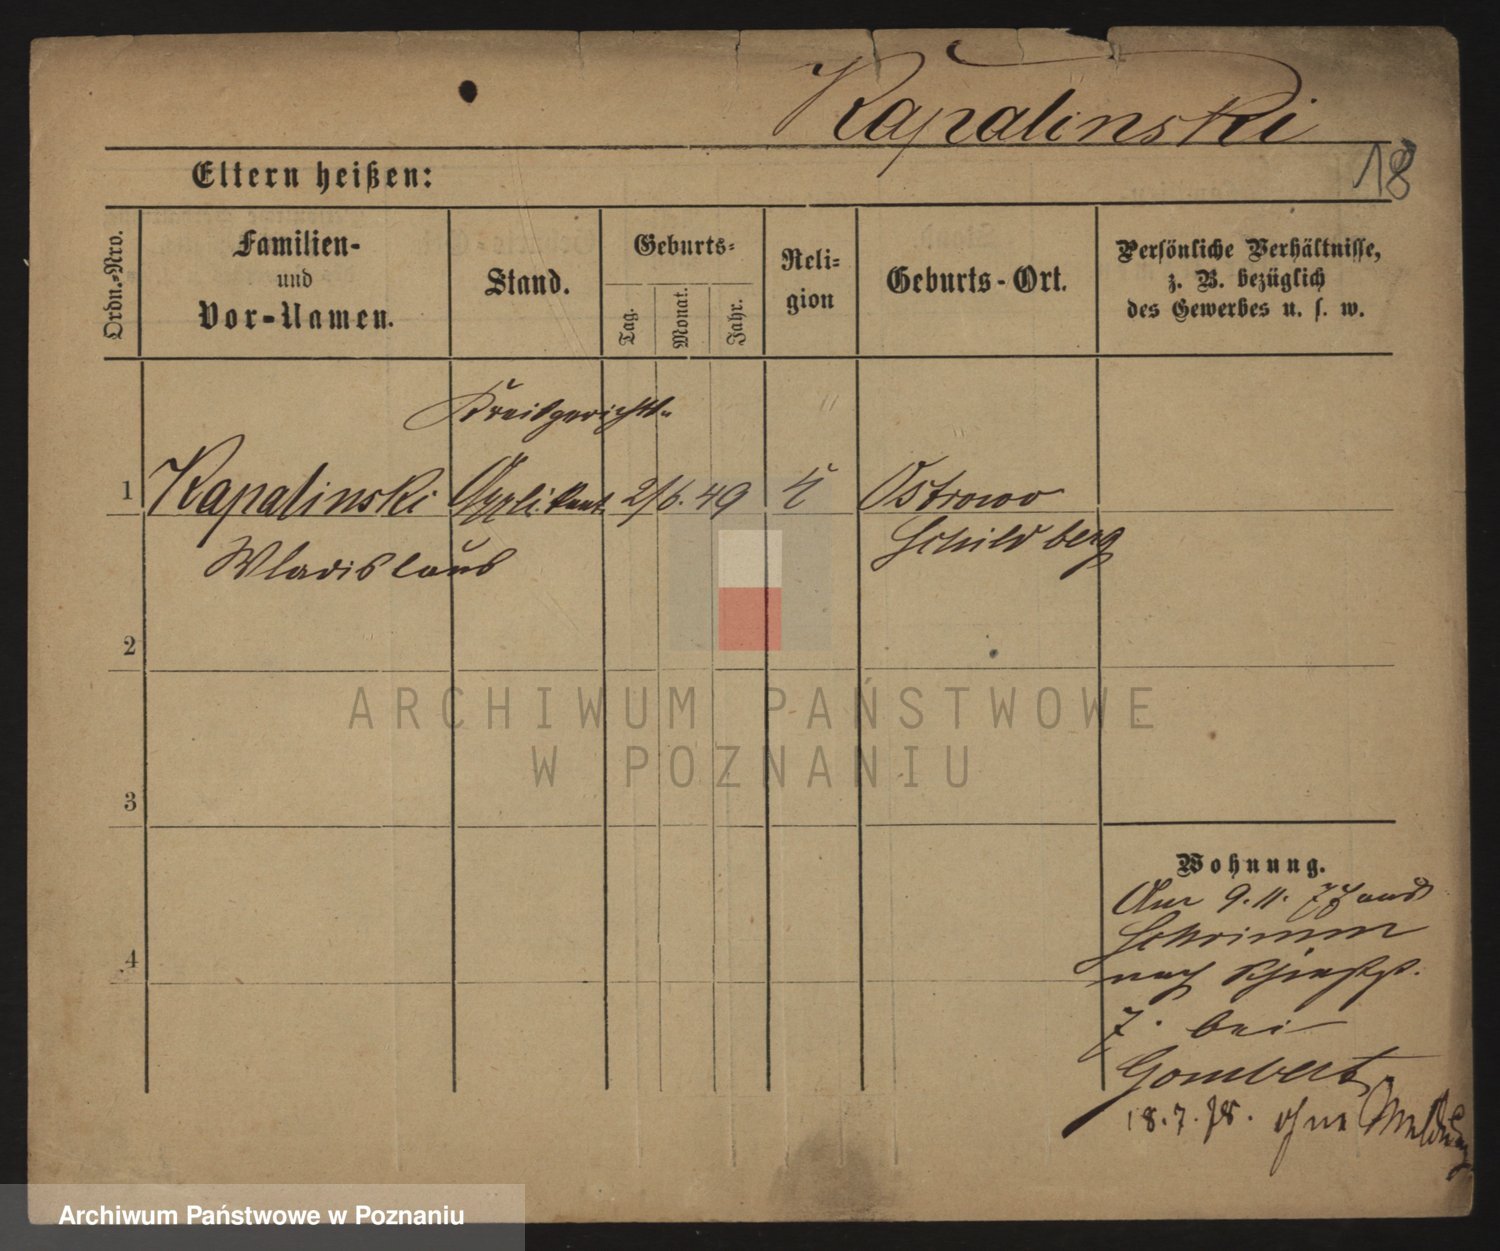 Kapalinski
18
Eltern heißen:
Ordn.-Nro.
Familien-
und
Vor-Namen.
Stand.
Geburts-
Tag.
Monat.
Jahr.
Reli-
gion
Geburts-Ort.
Persönliche Verhältnisse,
z. B. bezüglich
des Gewerbes u. s. w.
Kreisgerichts-
1 Kapalinski Applikant 2/6. 49 k Ostrowo
Wladislaus Schildberg
2
3
4
Wohnung.
Am 9. 11. 77 aus
Schrimm
nach
7. bei
Gombert
18. 7. 78. ohne Meldung
ARCHIWUM PAŃSTWOWE
W POZNANIU
Archiwum Państwowe w Poznaniu